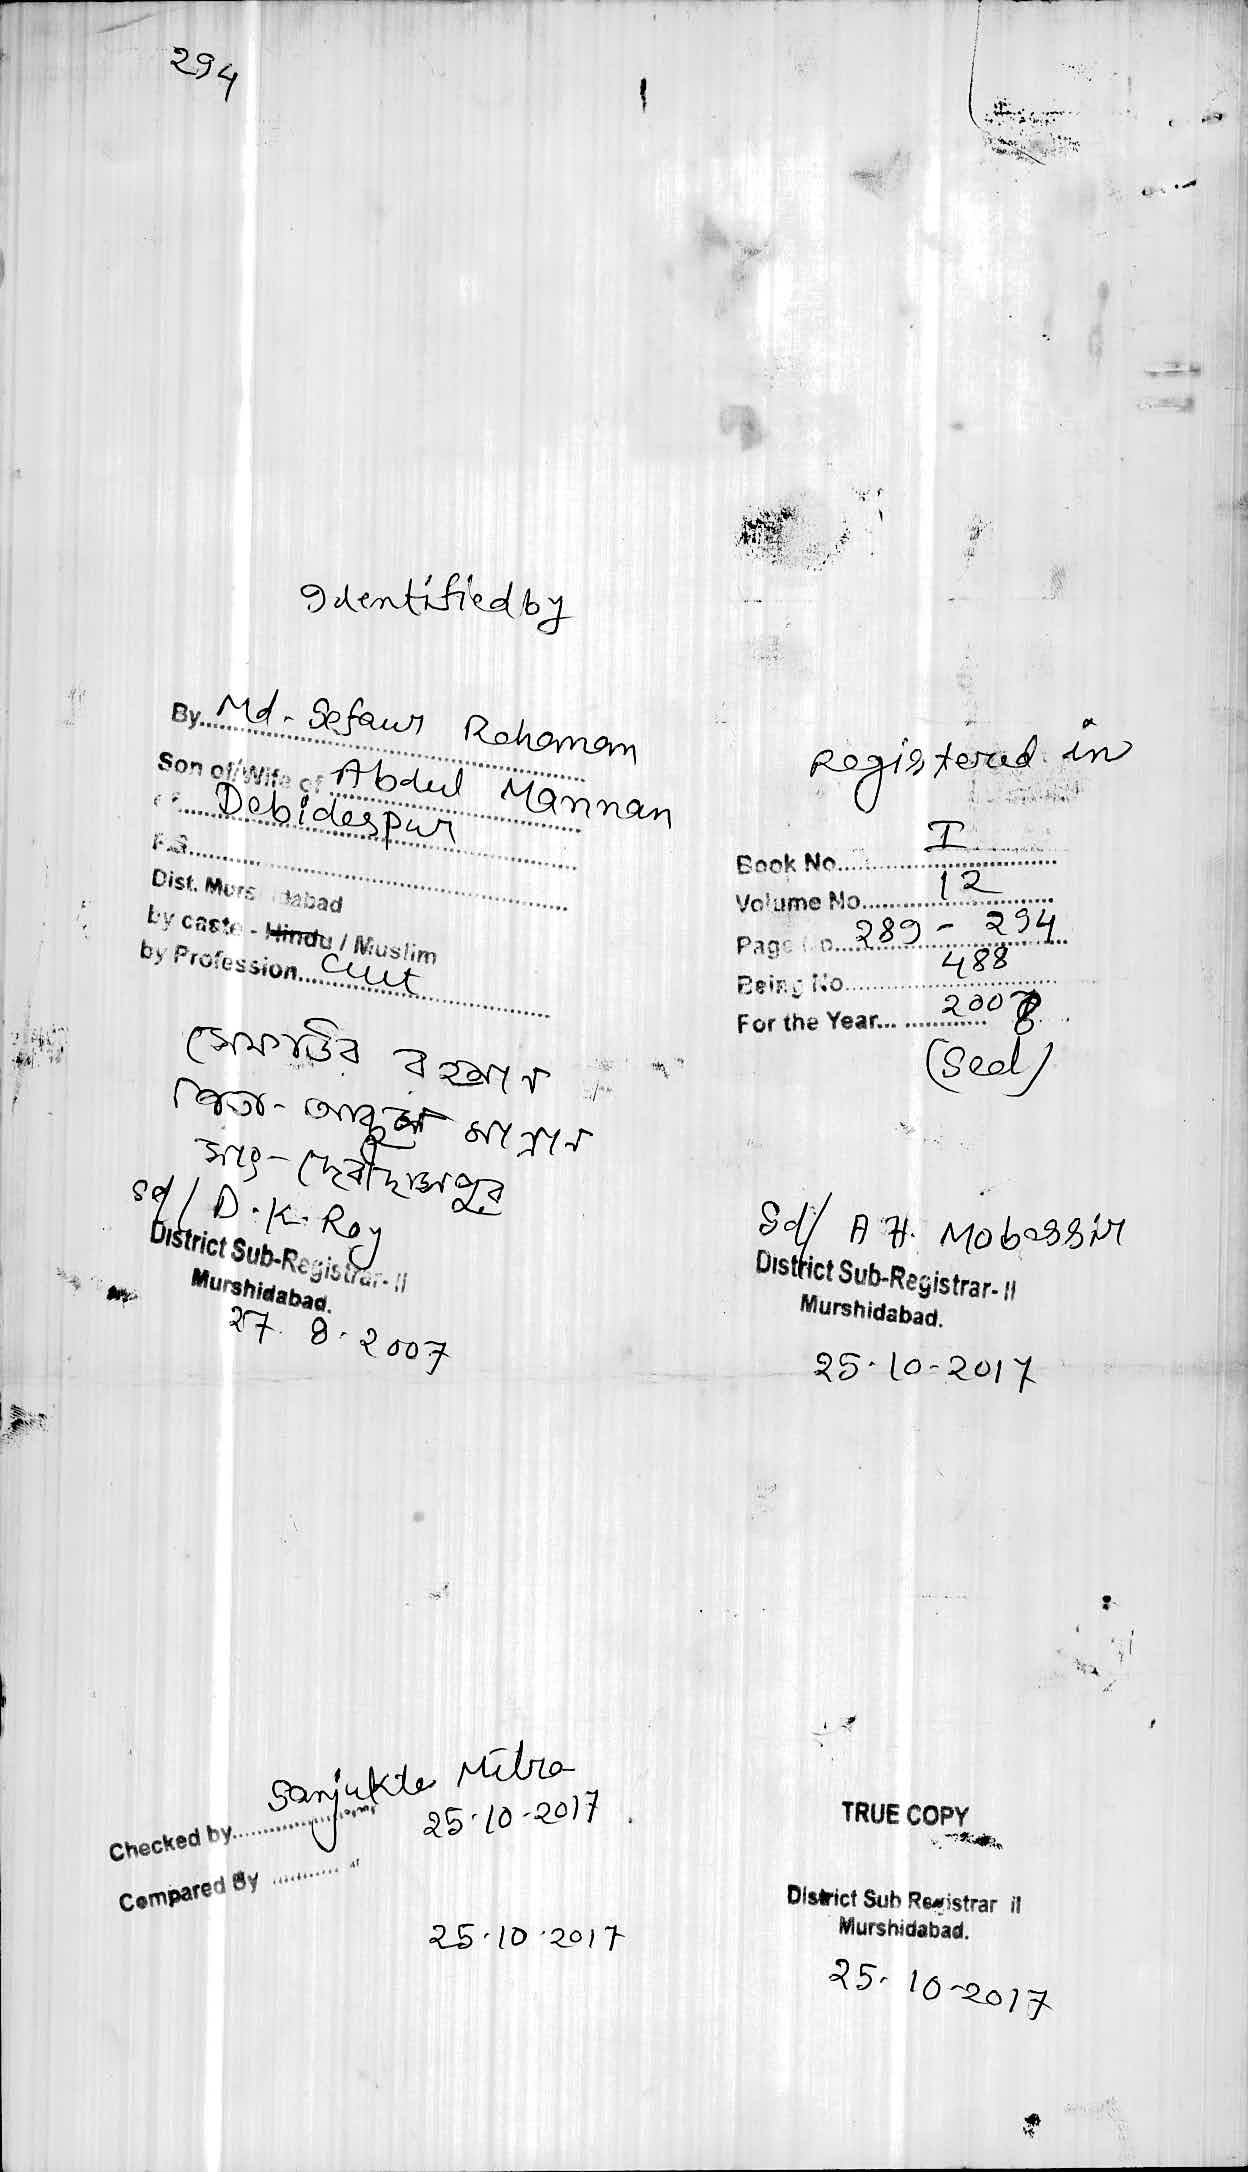 294
Identified by
By Md. Sefaur Rohaman
Son of/Wife of Abdul Mannan
of Debidaspur
P.S.
Dist. Murshidabad
by caste - Hindu / Muslim
by Profession Cult
সেফাউর রহমান
পিতা - আব্দুল মান্নান
সাং - দেবীদাসপুর
Sd/ D. K. Roy
District Sub-Registrar- II
Murshidabad.
27. 8. 2007
Registered in
Book No. I
Volume No. 12
Page No. 289 - 294
Being No. 488
For the Year 200
(Seal)
Sd/ A H. Mobassir
District Sub-Registrar- II
Murshidabad.
25-10-2017
Sanjukta Mitra
Checked by 25-10-2017
Compared By
25-10-2017
TRUE COPY
District Sub Registrar II
Murshidabad.
25-10-2017